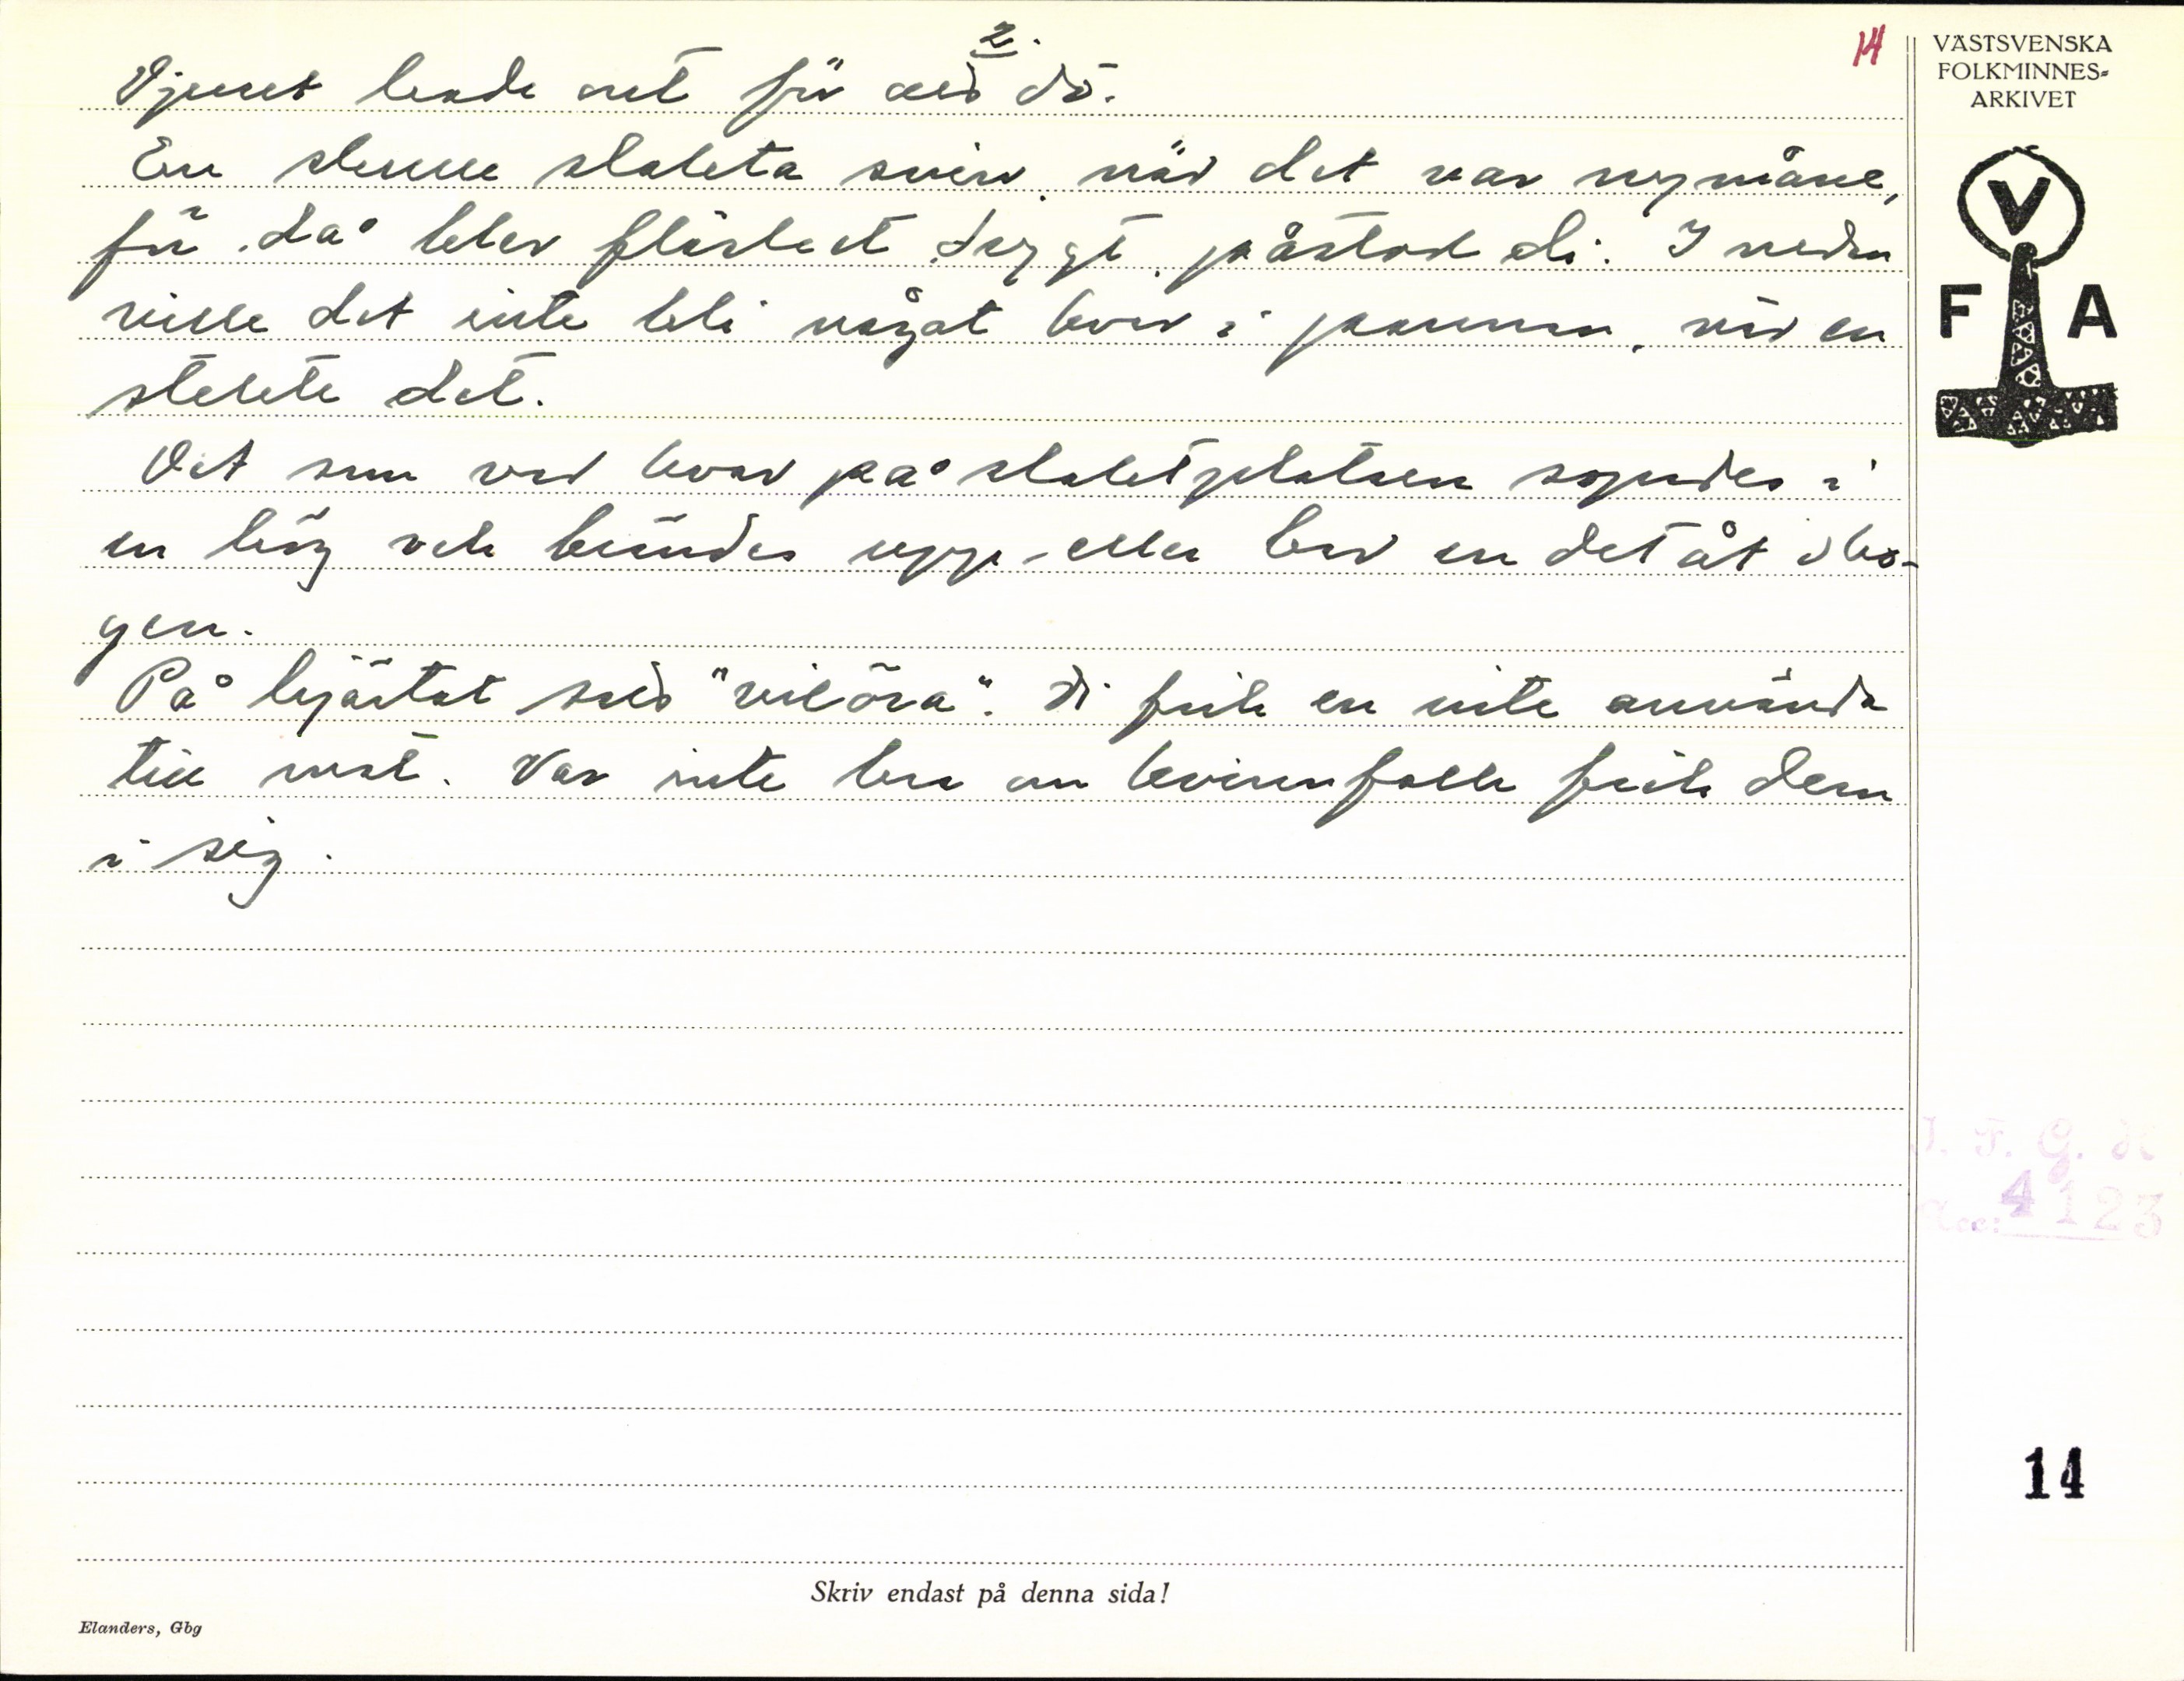 2.
14
Djuret hade ont för att dö.
En skulle slakta svin, när det var nymåne,
för då blev fläsket drygt, påstod di. I nedan
ville det inte bli något kvar i pannan, när en
stekte det.
Det som var kvar på slaktplatsen sopades i
en hög och brändes upp eller bar en det åt sko-
gen.
På hjärtat satt "vilöra". Di fick en inte använda
till mat. Var inte bra om kvinnfolk fick dem
i sig.
VÄSTSVENSKA
FOLKMINNES-
ARKIVET
V
F A
I. F. G. H
Acc: 4123
14
Skriv endast på denna sida!
Elanders, Gbg